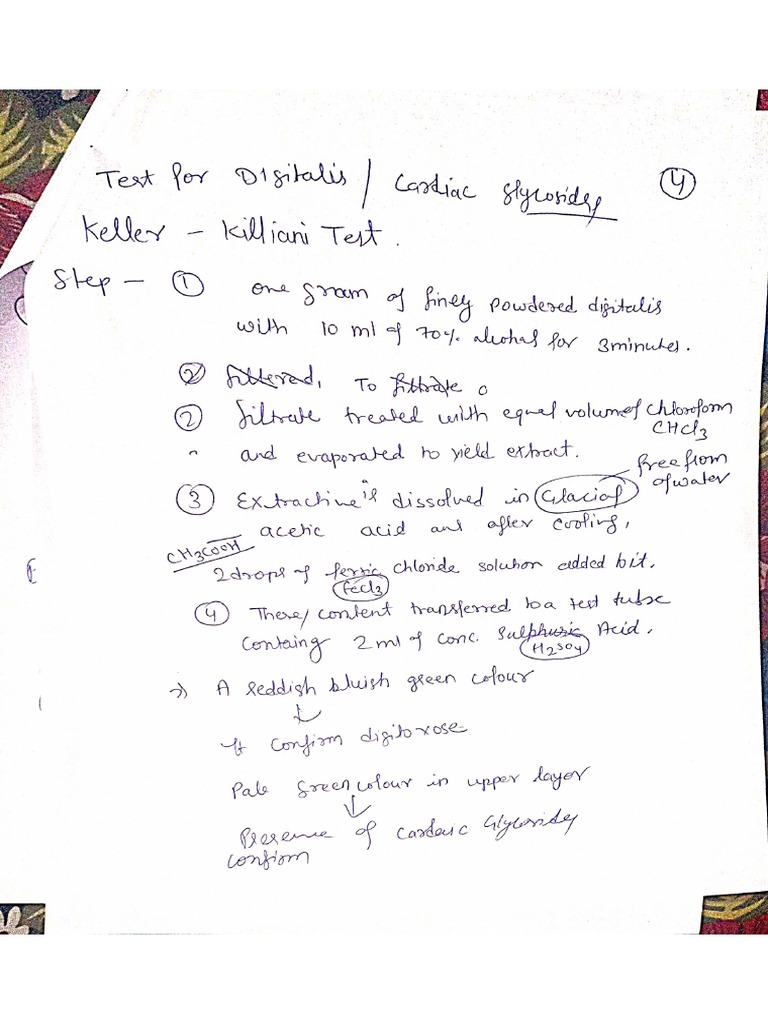 Test for Digitalis / Cardiac glycosides
4
Keller - Killiani Test.
Step - ① one gram of finely powdered digitalis
with 10 ml of 70% alcohal for 3minutes.
② filtered, To filtrate
② filtrate treated with equal volume of chloroform
CHCl3
and evaporated to yield extract.
free from
of water
③ Extractive is dissolved in Glacial
acetic acid and after cooling,
CH3COOH
2drops of ferric chloride solution added bit.
FeCl3
④ These/content transferred to a test tube
Containg 2ml of conc. Sulphuric Acid.
H2SO4
→ A reddish bluish green colour
It confirm digitoxose
Pale green colour in upper layer
Presence of Cardaic Glycosides
confirm